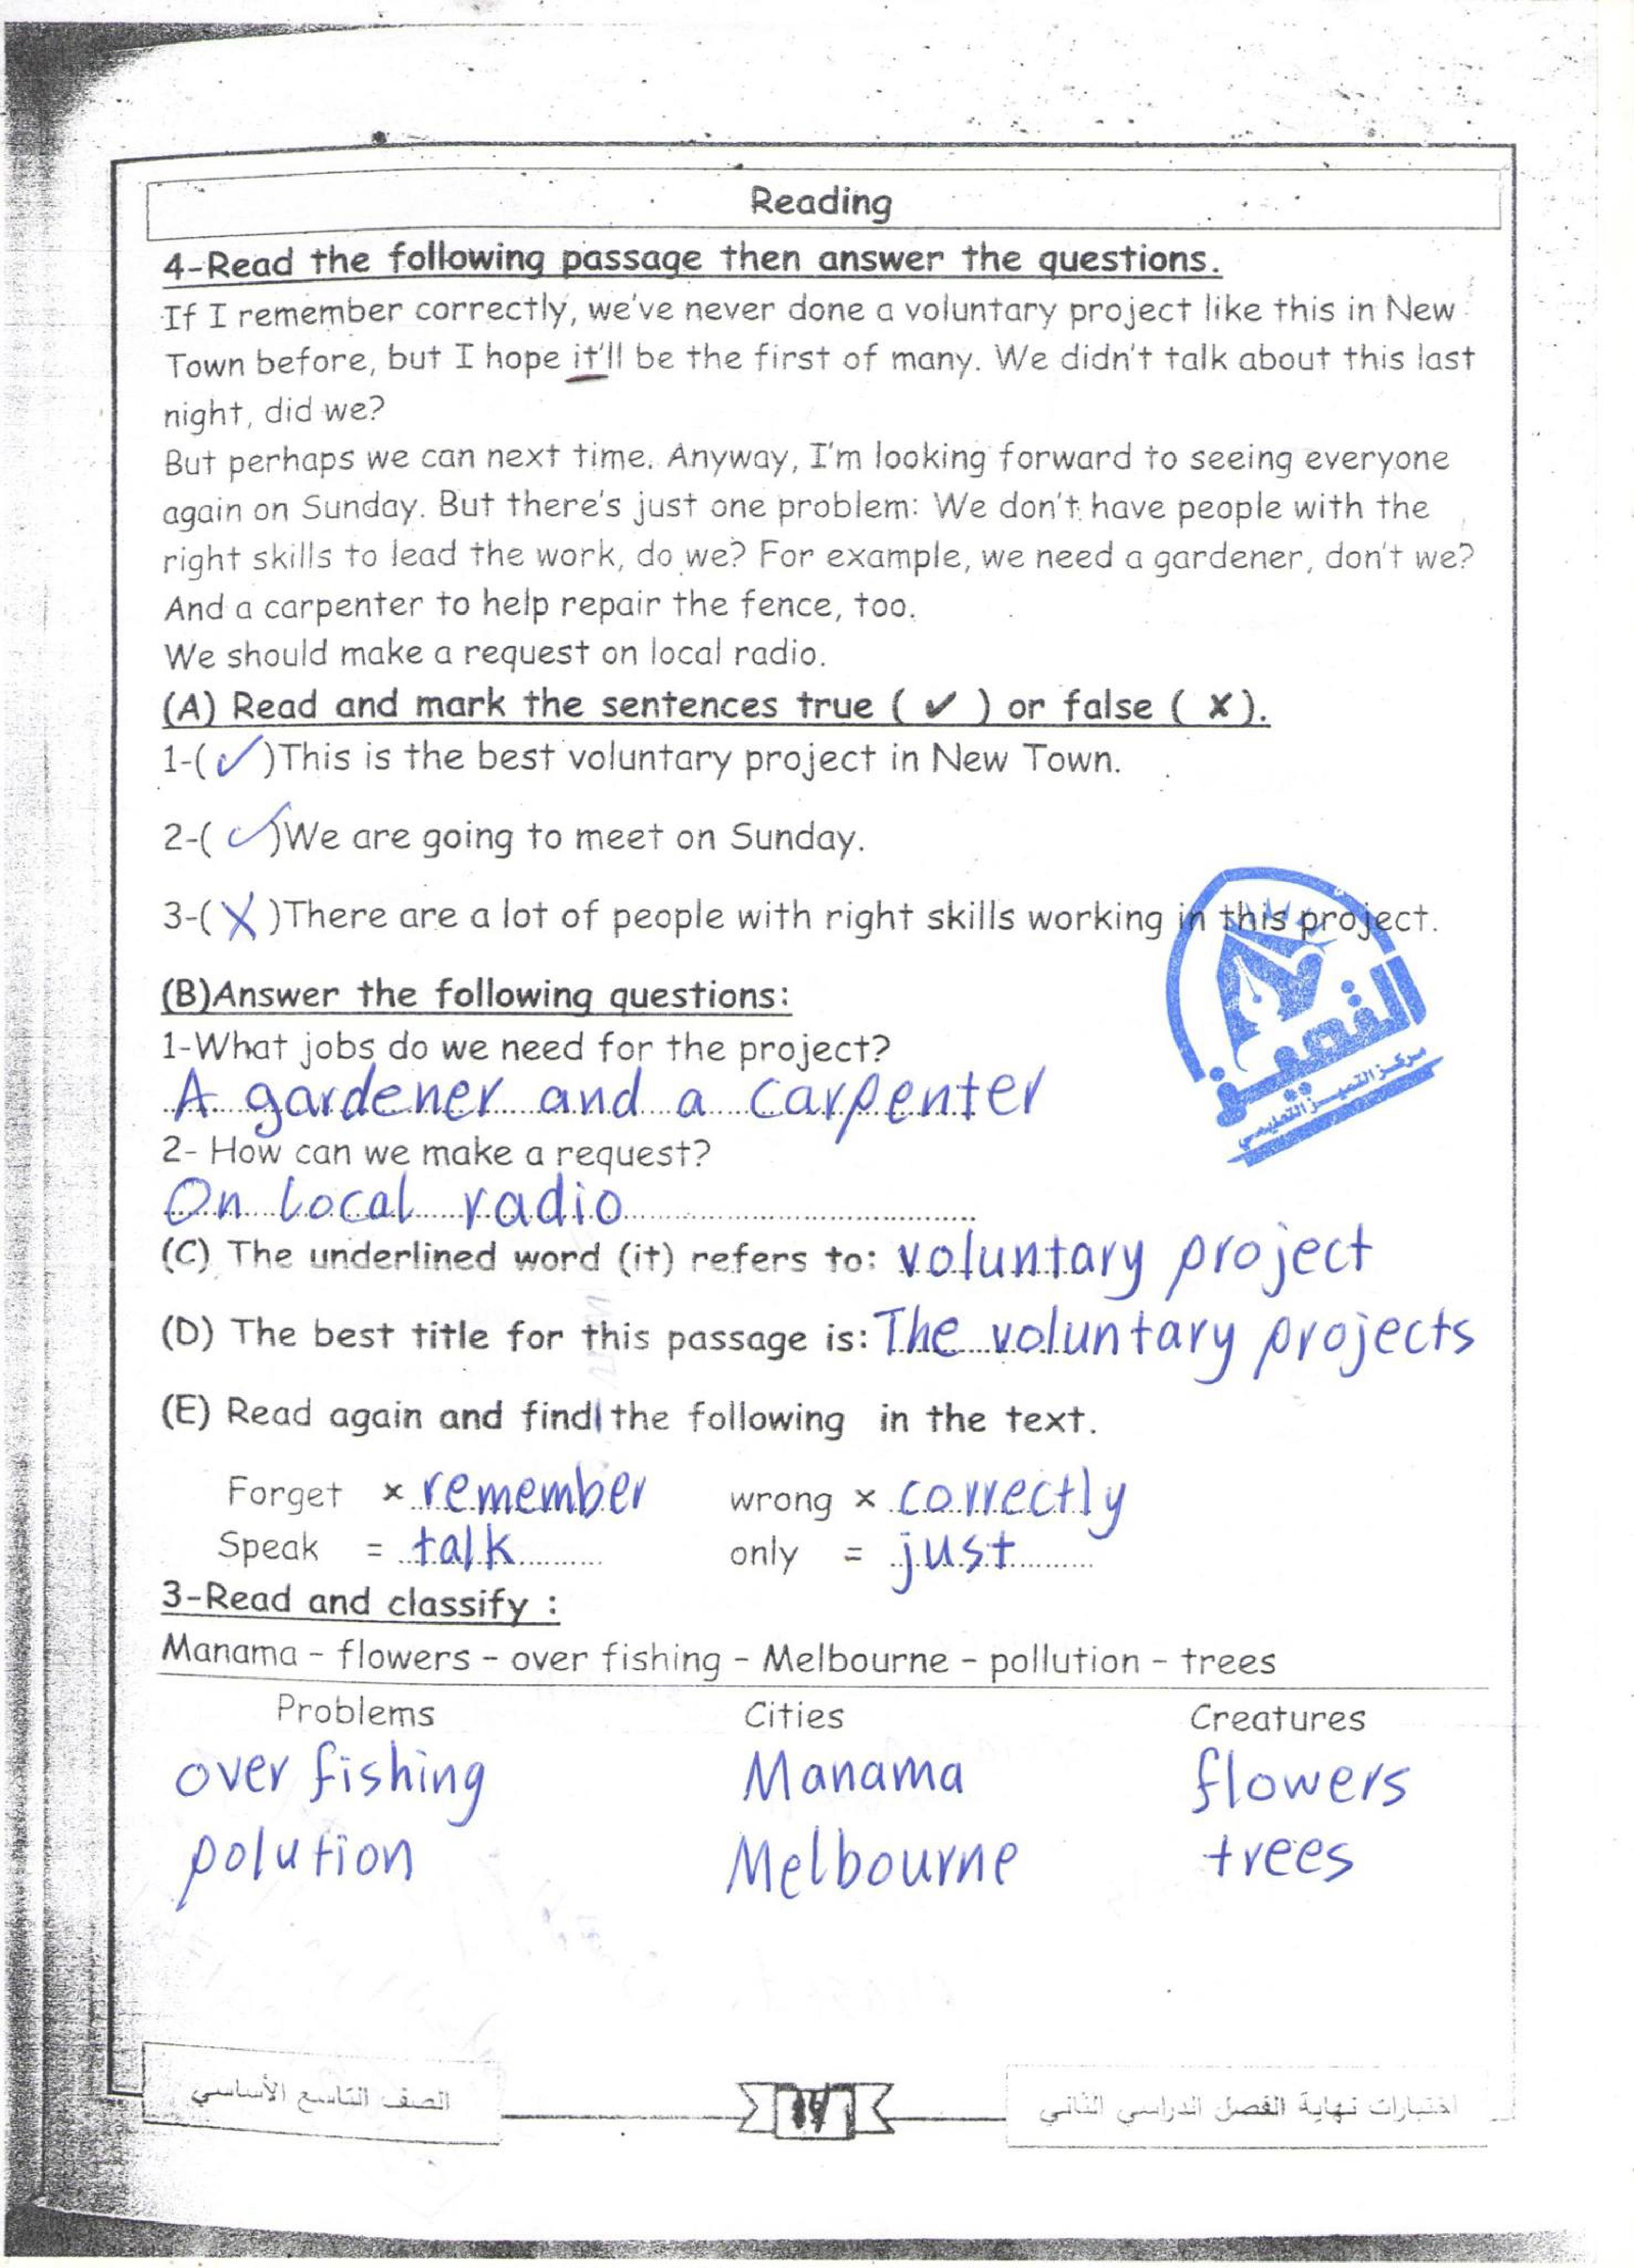 Reading
4-Read the following passage then answer the questions.
If I remember correctly, we've never done a voluntary project like this in New
Town before, but I hope it'll be the first of many. We didn't talk about this last
night, did we?
But perhaps we can next time. Anyway, I'm looking forward to seeing everyone
again on Sunday. But there's just one problem: We don't have people with the
right skills to lead the work, do we? For example, we need a gardener, don't we?
And a carpenter to help repair the fence, too.
We should make a request on local radio.
(A) Read and mark the sentences true ( ✔ ) or false ( ✗ ).
1-( ✓ )This is the best voluntary project in New Town.
2-( ✓ )We are going to meet on Sunday.
3-( X )There are a lot of people with right skills working in this project.
(B)Answer the following questions:
1-What jobs do we need for the project?
A gardener and a carpenter
2- How can we make a request?
On local radio
(C) The underlined word (it) refers to: voluntary project
(D) The best title for this passage is: The voluntary projects
(E) Read again and find the following in the text.
Forget × remember wrong × correctly
Speak = talk only = just
3-Read and classify :
Manama - flowers - over fishing - Melbourne - pollution - trees
Problems Cities Creatures
over fishing Manama flowers
polution Melbourne trees
التميز
مركز التميز التعليمي
اختبارات نهاية الفصل الدراسي الثاني
الصف التاسع الأساسي